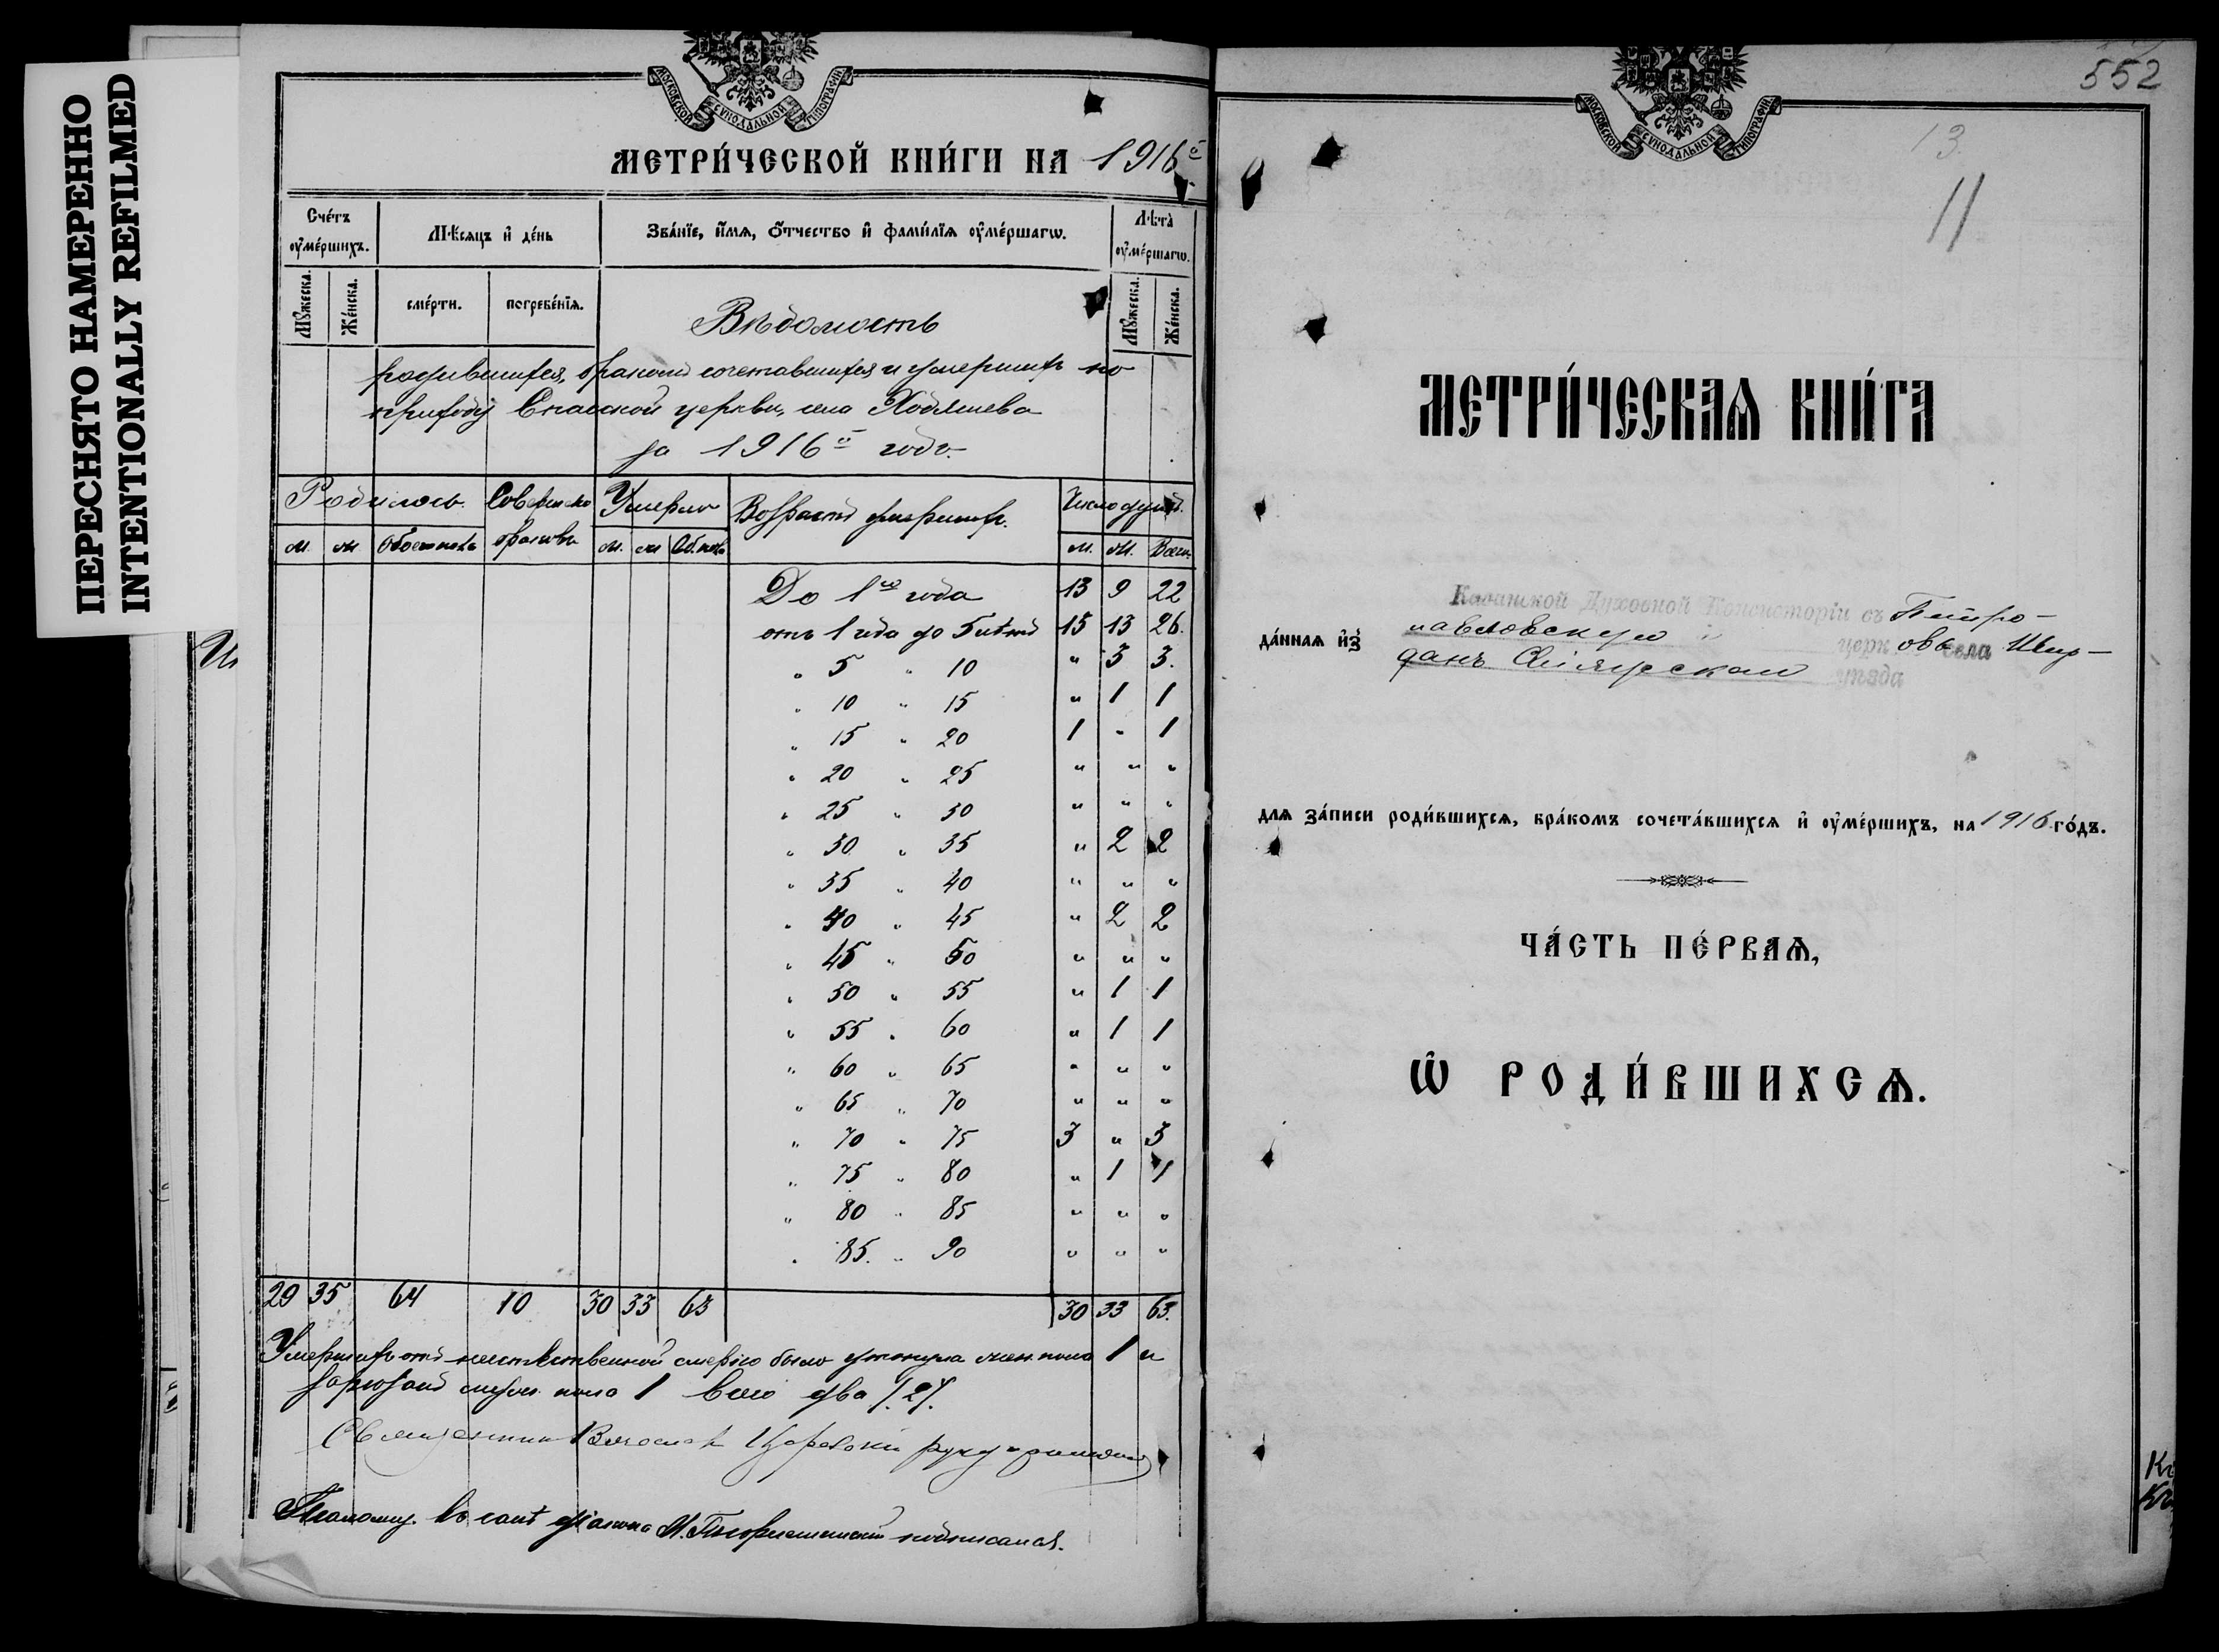 ПЕРЕСНЯТО НАМЕРЕННО
INTENTIONALLY REFILMED
МОСКОВСКОЙ СУНОДАЛЬНОЙ ТИПОГРАФІИ
МЕТРИ́ЧЕСКОЙ КНИ́ГИ НА 1916й
Сче́тъ оу҆ме́ршихъ.
Мѣ́сяцъ и҆ де́нь
Зва́нїе, и҆́мѧ, ѻ҆́тчество и҆ фами́лїѧ оу҆ме́ршагѡ.
Лѣ́та оу҆ме́ршагѡ.
Мꙋ́жеска.
Же́нска.
сме́рти.
погребе́нїѧ.
Мꙋ́жеска.
Же́нска.
Вѣдомость
родившихся, бракомъ сочетавшихся и умершихъ по
приходу Спасской церкви, села Ходяшева
за 1916й годъ.
Родилось Совершено браковъ Умерло Возрастъ умершихъ. Число душъ.
м. ж. обоего пола м. ж. Об. пола м. ж. Всего
До 1го года 13 9 22
отъ 1 года до 5 лѣтъ 15 13 26.
" 5 " 10 " 3 3.
" 10 " 15 " 1 1
" 15 " 20 1 " 1
" 20 " 25 " " "
" 25 " 30 " " "
" 30 " 35 " 2 2
" 35 " 40 " " "
" 40 " 45 " 2 2
" 45 " 50 " " "
" 50 " 55 " 1 1
" 55 " 60 " 1 1
" 60 " 65 " " "
" 65 " 70 " " "
" 70 " 75 3 " 3
" 75 " 80 " 1 1
" 80 " 85 " " "
" 85. " 90 " " "
29 35 64 10 30 33 63 30 33 63.
Умершихъ отъ неестественной смерти было утонула жен. пола 1 и
зарѣзанъ мужск. пола 1 Всего два /.2/.
Священникъ Царевскій руку приложилъ
Псаломщ. въ санѣ діакона М. подписался.
552
МОСКОВСКОЙ СУНОДАЛЬНОЙ ТИПОГРАФІИ
13.
11
МЕТРИ́ЧЕСКАѦ КНИ́ГА
да́ннаѧ и҆з̾ Казанской Духовной Консисторіи въ Петро-
павловскую церковь села Шир-
данъ Свіяжскаго уѣзда
длѧ за́писи роди́вшихсѧ, бра́комъ сочета́вшихсѧ и҆ оу҆ме́ршихъ, на 1916 го́дъ.
ЧА́СТЬ ПЕ́РВАѦ,
Ѡ҆ РОДИ́ВШИХСѦ.